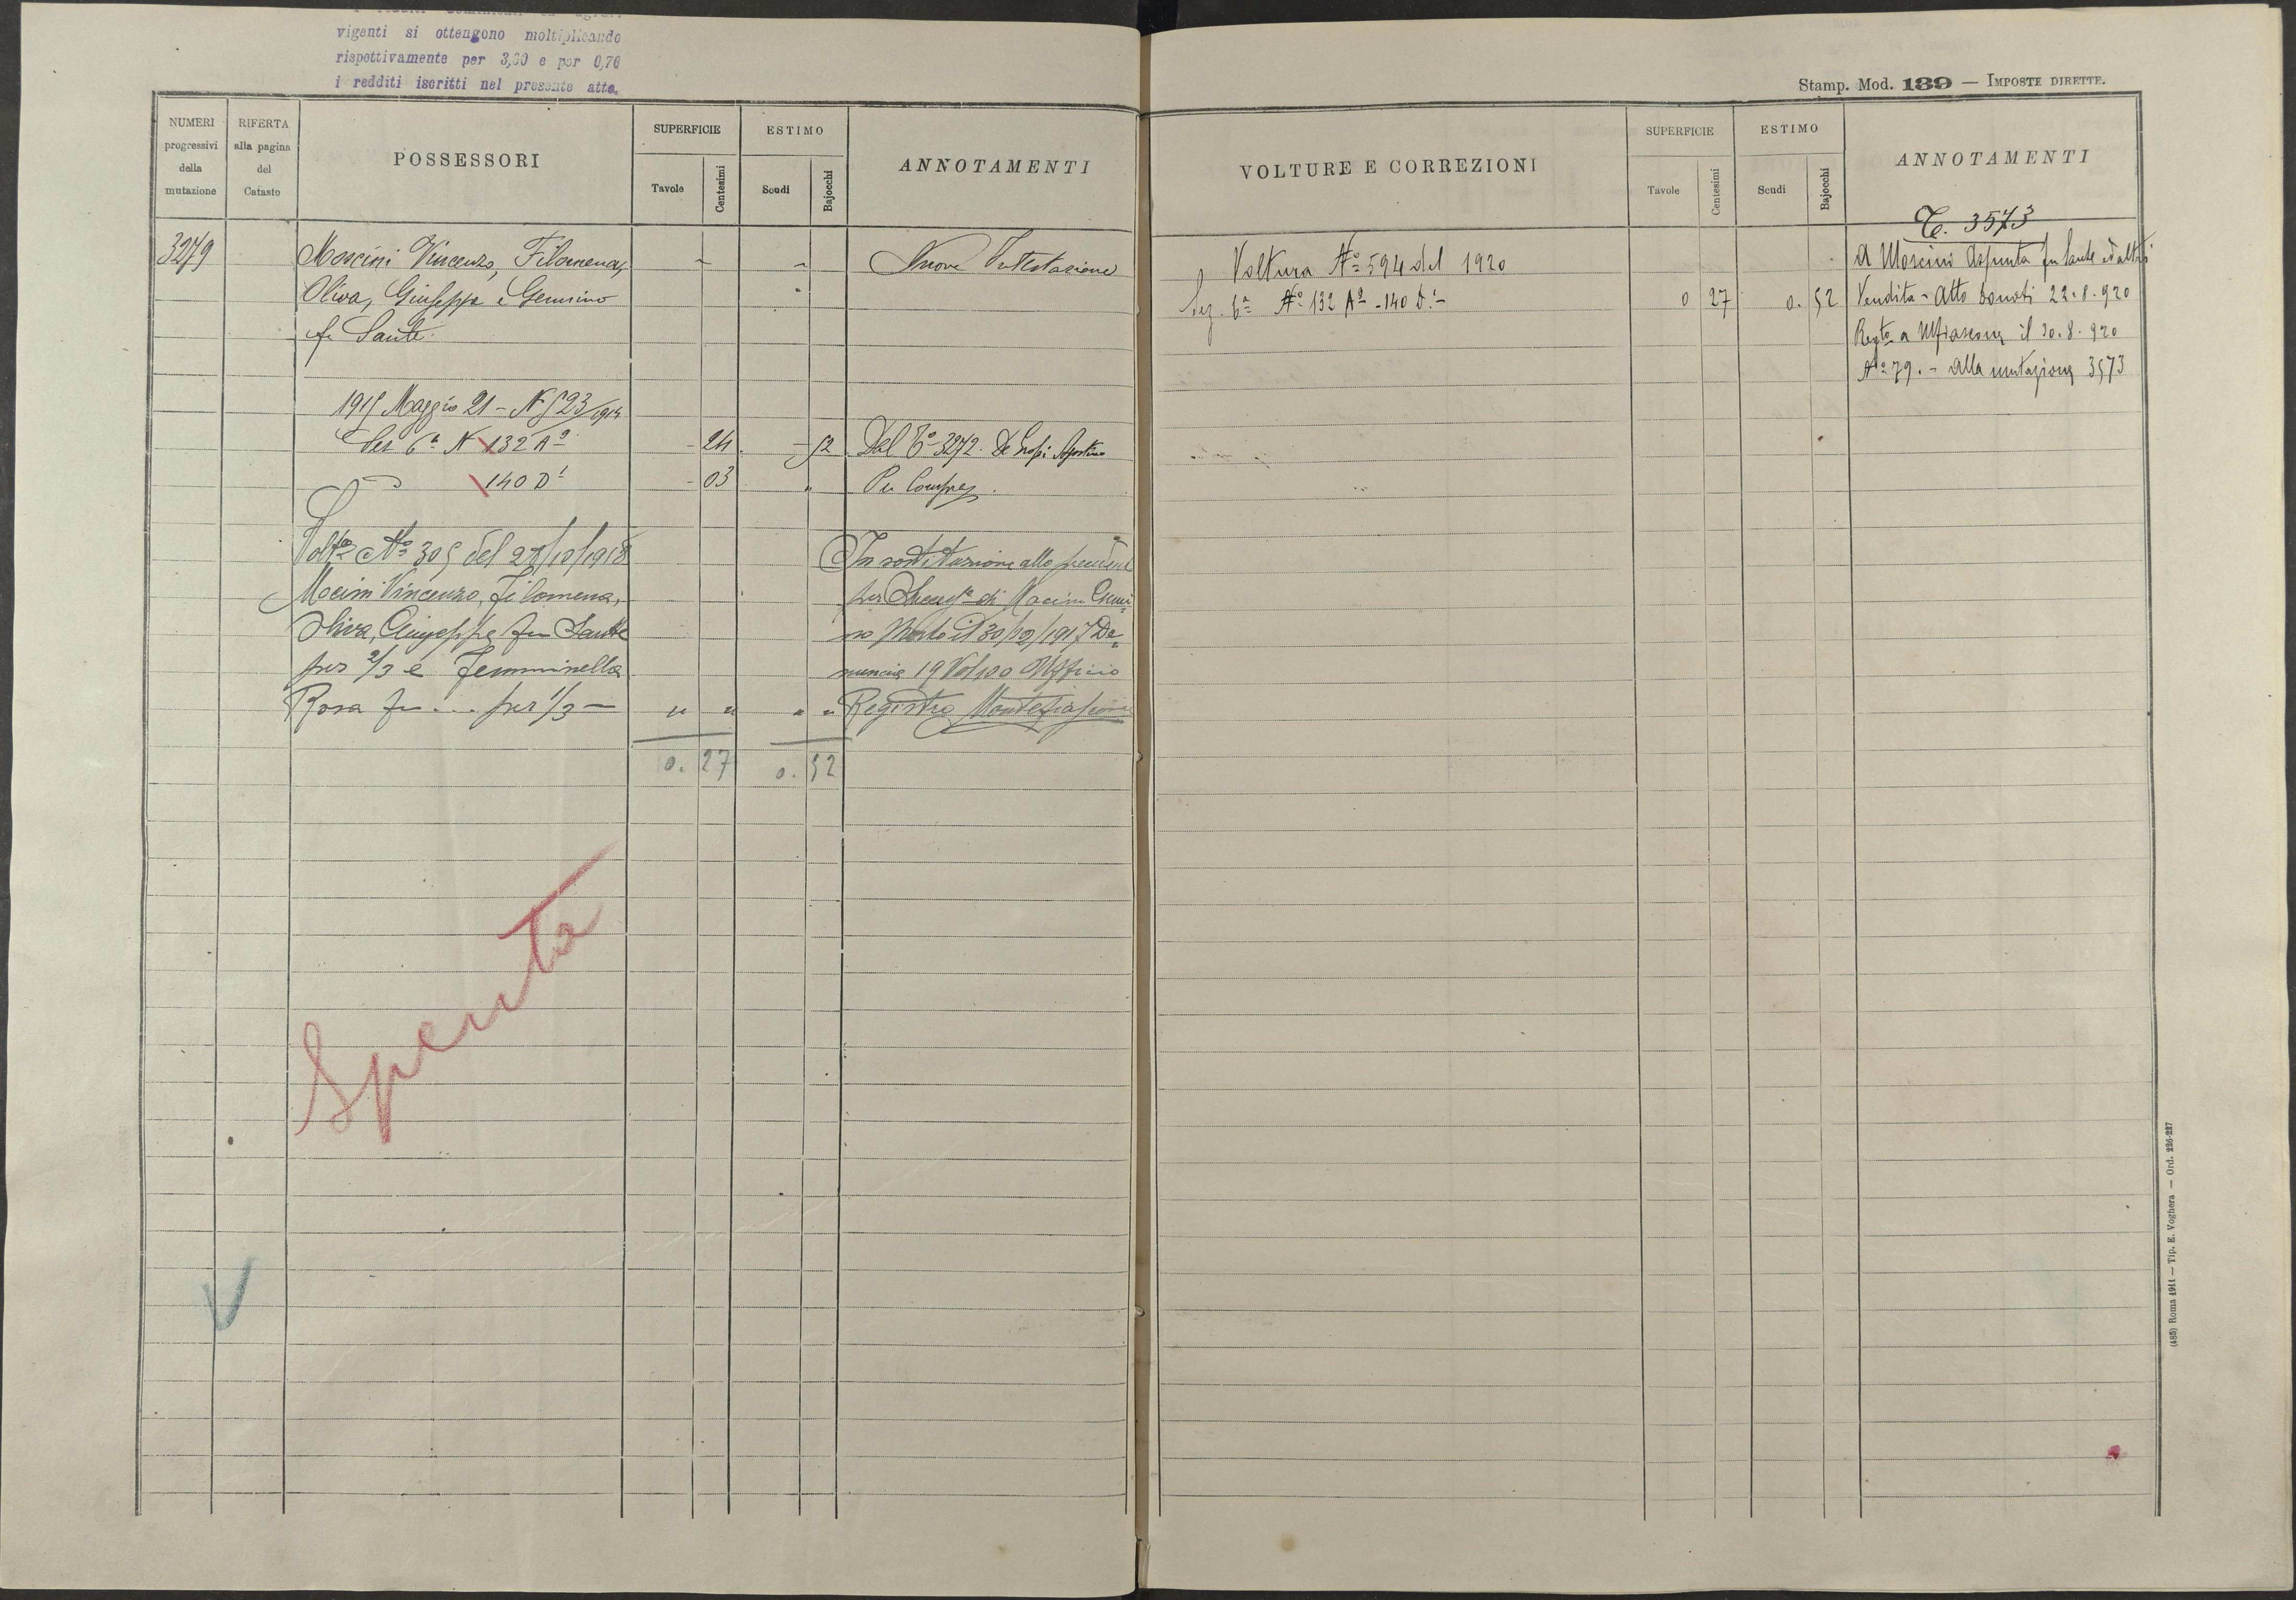 vigenti si ottengono moltiplicando
rispettivamente per 3,60 e per 0,76
i redditi iscritti nel presente atto.
Stamp. Mod. 139 — IMPOSTE DIRETTE.
NUMERI progressivi della mutazione
RIFERTA alla pagina del Catasto
POSSESSORI
SUPERFICIE
Tavole
Centesimi
ESTIMO
Scudi
Bajocchi
ANNOTAMENTI
3279
Moscini Vincenzo, Filomena,
Nuova Intestazione
Oliva, Giuseppe e Gemino
fu Sante.
1915 Maggio 21 - N 523/1914
Sez 6ª N 132 Aº - 24 - 52 Dal Cº 3272. De Agostino
140 D¹ - 03 " Per Compra
Voltª Nº 305 del 28/10/1918
In sostituzione allo
Mocini Vincenzo, Filomena,
per di Mocini
Oliva, Giuseppe fu Sante
no Morto il 30/12/1917 De=
per 2/3 e Femminella
nuncia 19 Vol 100 Ufficio
Rosa fu ... per 1/3 — " " " " Registro Montefiascone
0. 27 0. 52
Spenta
VOLTURE E CORREZIONI
SUPERFICIE
Tavole
Centesimi
ESTIMO
Scudi
Bajocchi
ANNOTAMENTI
C. 3573
Voltura Nº 594 del 1920
A Moscini Assunta fu Sante ed altri
Sez. 6ª Nº 132 Aº - 140 D.¹ - 0 27 0. 52 Vendita - Atto Donati 22.8.920
Regto a Mfiascone il 30.8.920
Nº 79. - alla mutazione 3573
(485) Roma 1914 — Tip. E. Voghera — Ord. 226-227